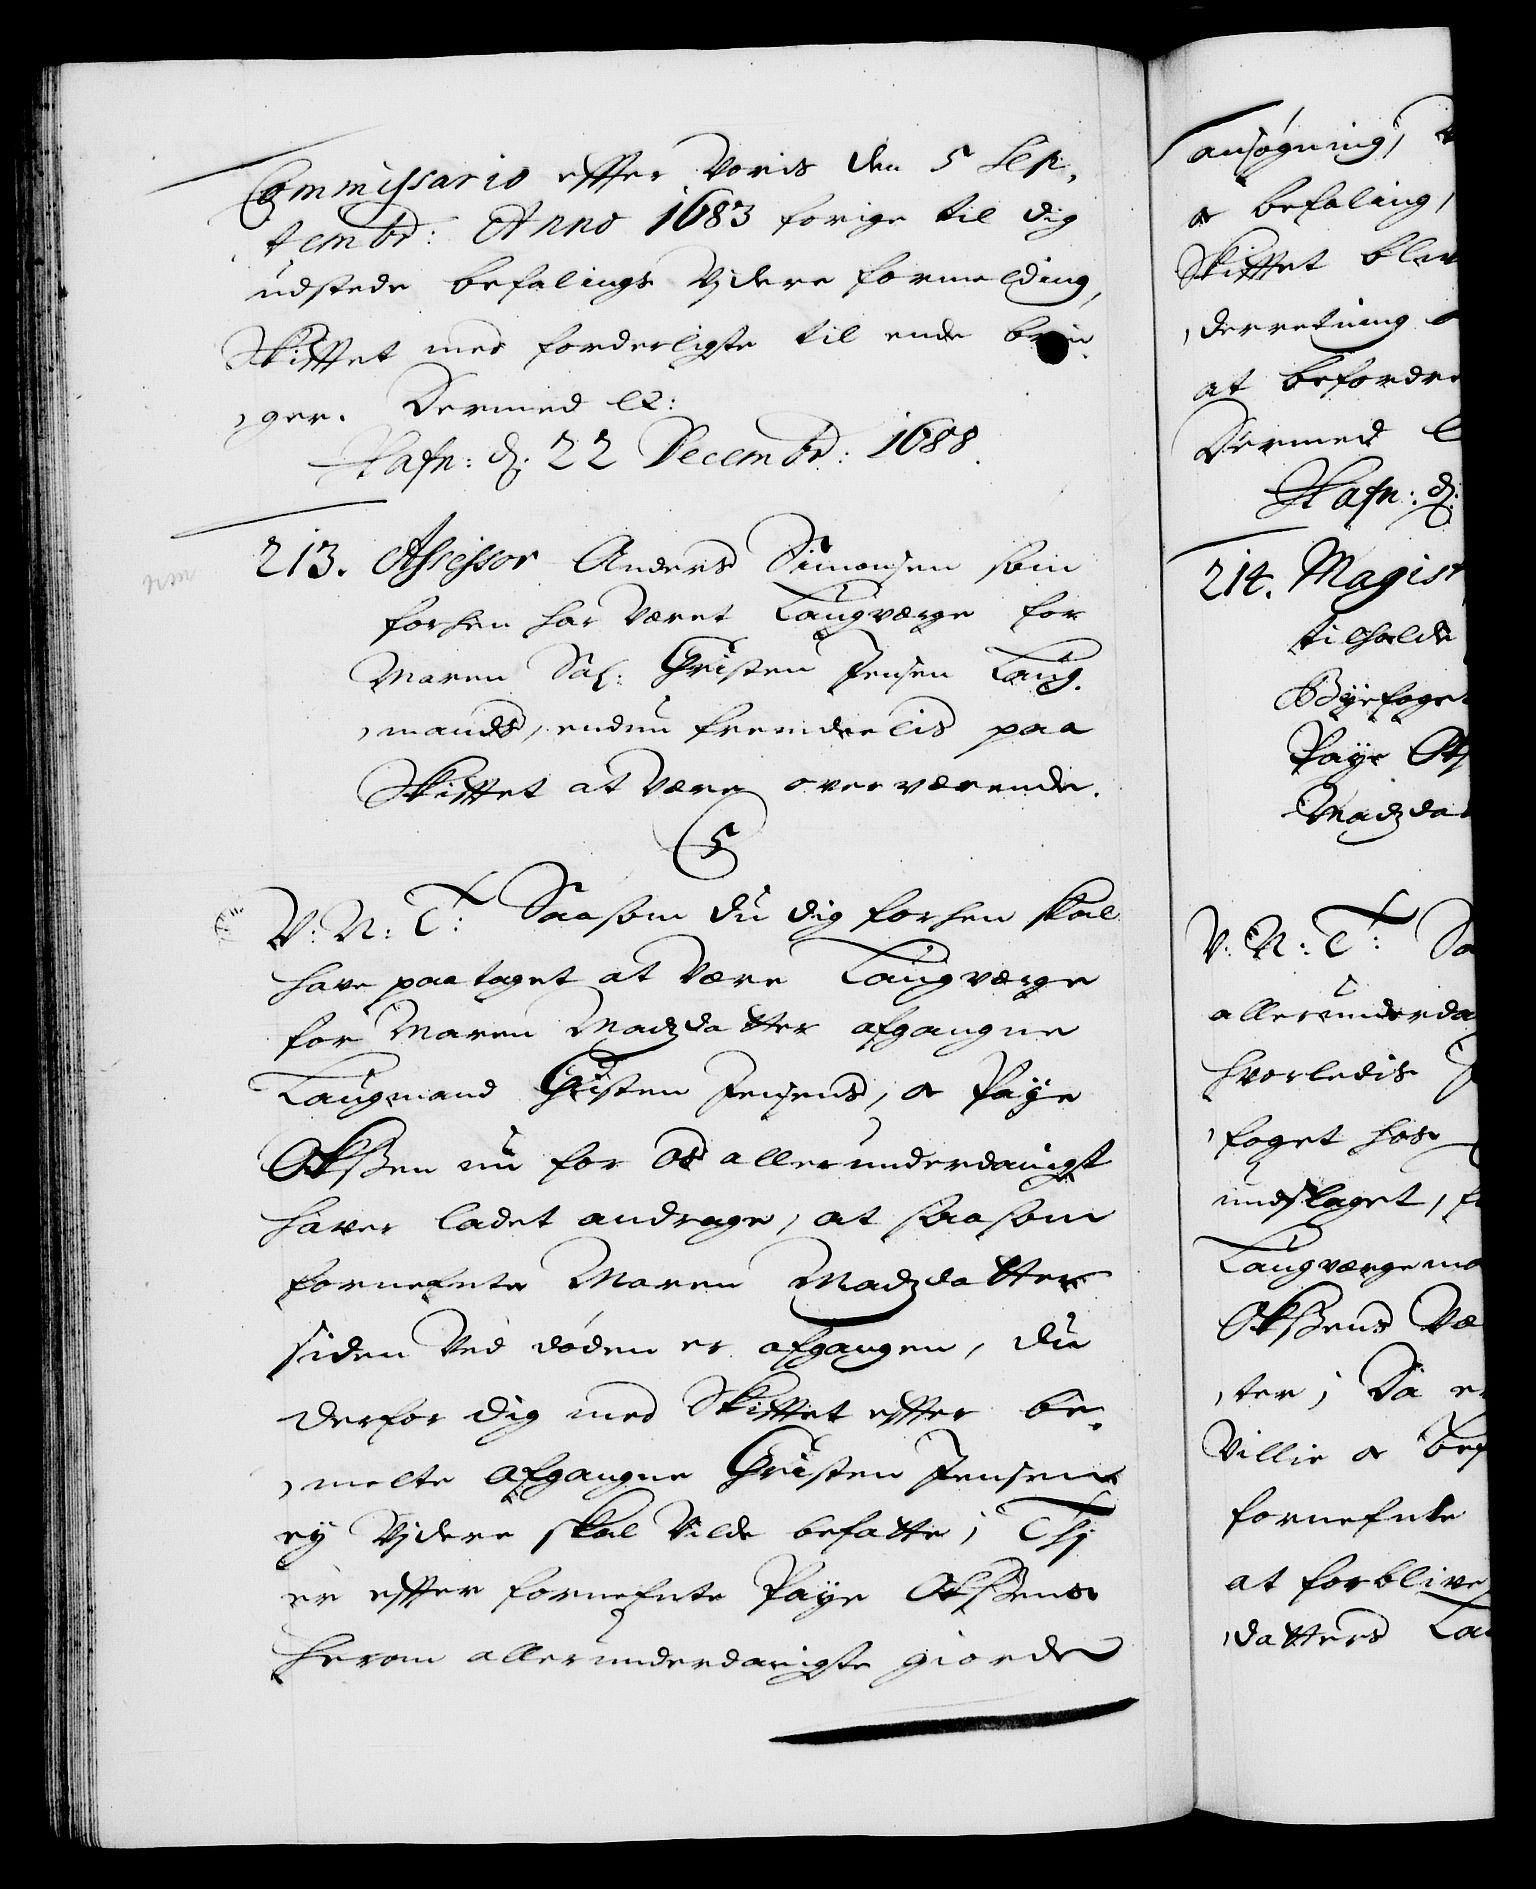 Commissario effter Voris den 5 Sep,
tembr: Anno 1683 forige til dig
udstede befalings Vjdere formelding,
Skifftet med forderligste til ende brin,
,ger. Dermed &:
Hafn: d: 22 Decembr: 1688.
213. Assessor Anders Simonsen som
forhen har Været Laugværge for
Maren Sal: Christen Jensen Laug,
,mands, endnu fremdeelis paa
Skifftet at Være overværende.
C5
V: N: T: Saasom du dig forhen skal
have paataget at Være Laugværge
for Maren Madzdatter afgangne
Laugmand Christen Jensens, oc Paye
Ochssen nu for Os allerunderdanigst
haver ladet andrage, at saasom
fornefnte Maren Madzdatter
siden Ved døden er afgangen, du
derfor dig med Skifftet effter be,
,melte afgangne Christen Jensen
ey Vjdere skal Vilde befatte; Thj
er effter fornefnte Paye Ochssens
herom allerunderdanigste giorde
ansøgning,
oc befaling,
Skifftet blev
,derretning
at befordre
Dermed
Hafn: d:
214. Magist
tilholde
Byefoget
Paye
Madzda
V: N: T: Sa
allerunderda
hvorledis
,foget hos
undslaget,
Laugværgema
Ochssens Væ
,ter; Da er
Villie oc bef
fornefnte
at forblive
,datters Lau